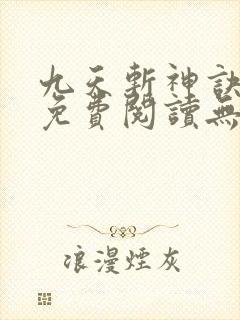 九天斬神訣
免費閱讀無
浪漫煙灰